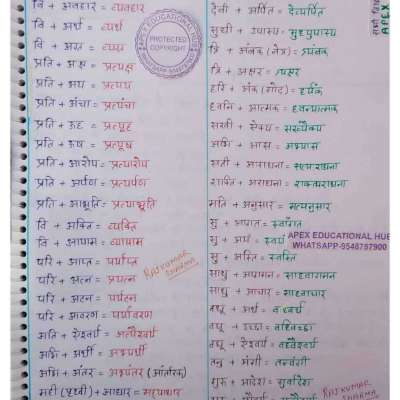 वि + अवहार = व्यवहार
वि + अर्थ = व्यर्थ
वि + अस्त = व्यस्त
प्रति + अक्ष = प्रत्यक्ष
प्रति + अय = प्रत्यय
प्रति + अंचा = प्रत्यंचा
प्रति + ऊह = प्रत्यूह
प्रति + ऊष = प्रत्यूष
प्रति + आरोप = प्रत्यारोप
प्रति + अर्पण = प्रत्यर्पण
प्रति + आभूति = प्रत्याभूति
वि + अक्ति = व्यक्ति
वि + आयाम = व्यायाम
परि + आप्त = पर्याप्त
परि + अत्न = प्रयत्न
परि + अत्न = पर्यत्न
परि + आवरण = पर्यावरण
अति + ऐश्वर्य = अत्यैश्वर्य
अभि + अर्थी = अभ्यर्थी
अभि + अंतर = अभ्यंतर (आंतरिक)
मही (पृथ्वी) + आधार = मह्याधार
RAJKUMAR
SHARMA
APEX EDUCATIONAL HUB
PROTECTED
COPYRIGHT
देवी + अर्पित = देव्यर्पित
सुधी + उपास्य = सुध्युपास्य
त्रि + अंबक (नेत्र) = त्र्यंबक
त्रि + अक्षर = त्र्यक्षर
हरि + अंक (गोद) = हर्यंक
ध्वनि + आत्मक = ध्वन्यात्मक
सखी + ऐक्य = सख्यैक्य
अभि + आस = अभ्यास
सती + आराधना = सत्याराधना
शक्ति + आराधना = शक्त्याराधना
मति + अनुसार = मत्यनुसार
सु + आगत = स्वागत
सु + अयं = स्वयं
सु + अस्ति = स्वस्ति
APEX EDUCATIONAL HUB
WHATSAPP-9546757900
साधु + आगमन = साध्वागमन
साधु + आचार = साध्वाचार
वधू + अर्थ = वध्वर्थ
वधू + इच्छा = वध्विच्छा
वधू + ऐश्वर्य = वध्वैश्वर्य
तनु + अंगी = तन्वंगी
गुरु + आदेश = गुर्वादेश
RAJKUMAR
SHARMA